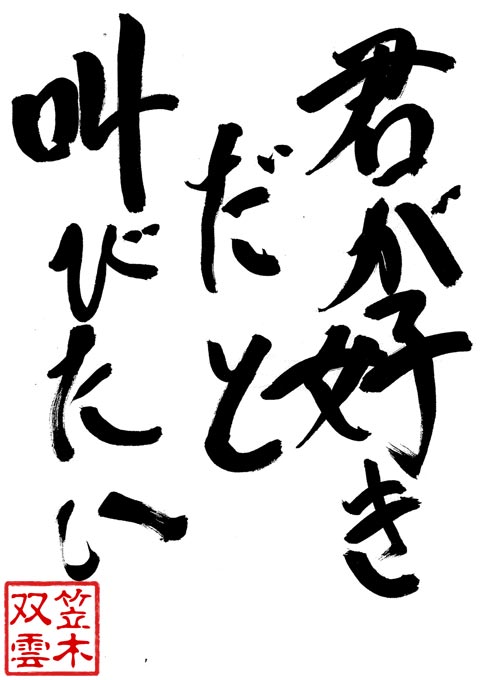 君が好き
だと
叫びたい
笠木
双雲